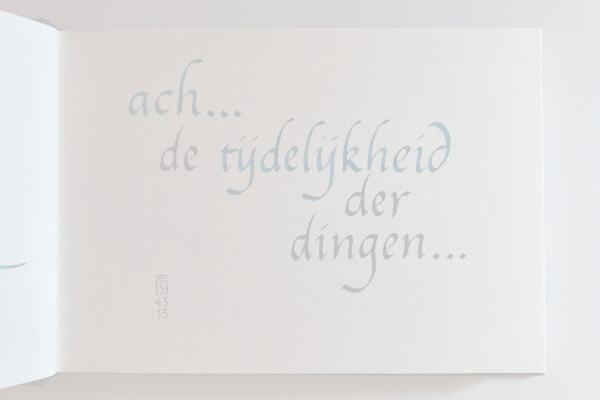 ach...
de tijdelijkheid
der
dingen...